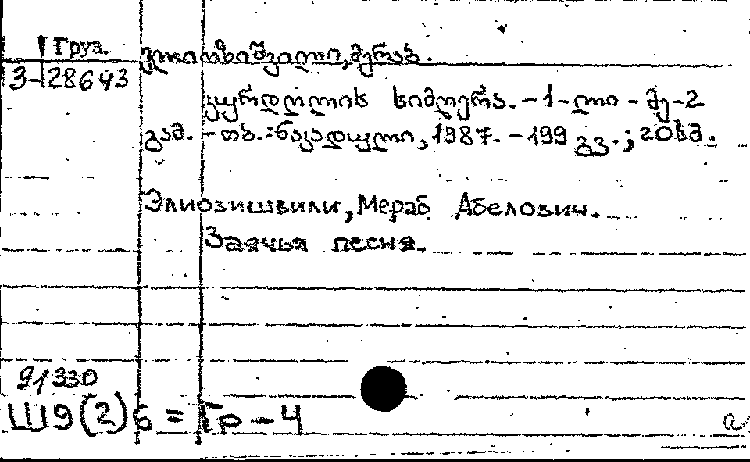 Груз.
3-28643
ელიოზიშვილი, მერაბ.
კურდღლის სიმღერა. - 1-ლი - მე-2
გამ. - თბ.: ნაკადული, 1987. - 199 გვ.; 20სმ.
Элиозишвили, Мераб Абелович.
Заячья песня.
91330
Ш9(2)6 = Гр - 4
a